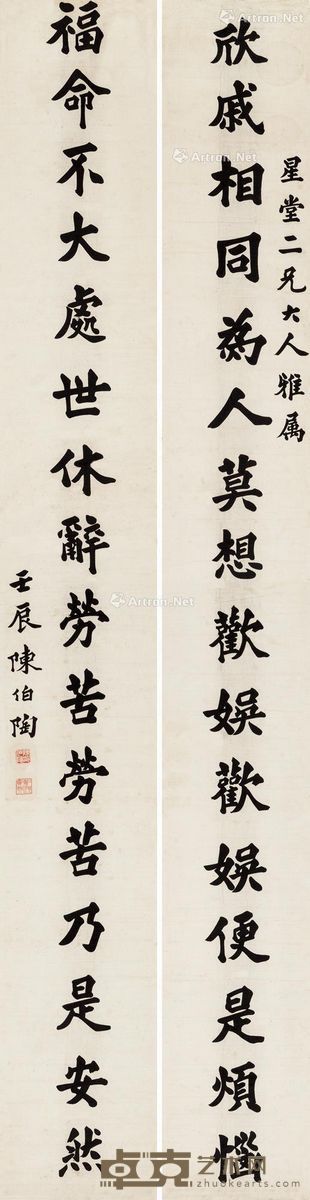 星堂二兄大人雅属
欣戚相同為人莫想歡娱歡娱便是煩惱
福命不大處世休辭勞苦勞苦乃是安然
壬辰陳伯陶
Artron.Net
Artron.Net
Artron.Net
卓克艺术网
www.zhuokearts.com